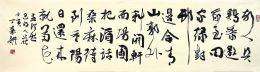 故人具
鷄黍邀
我至田
家绿樹
村邊合青
山郭外
斜開軒
面場圃
把酒話
桑麻待
到重陽
日還來
就菊花
孟浩然
過故人莊